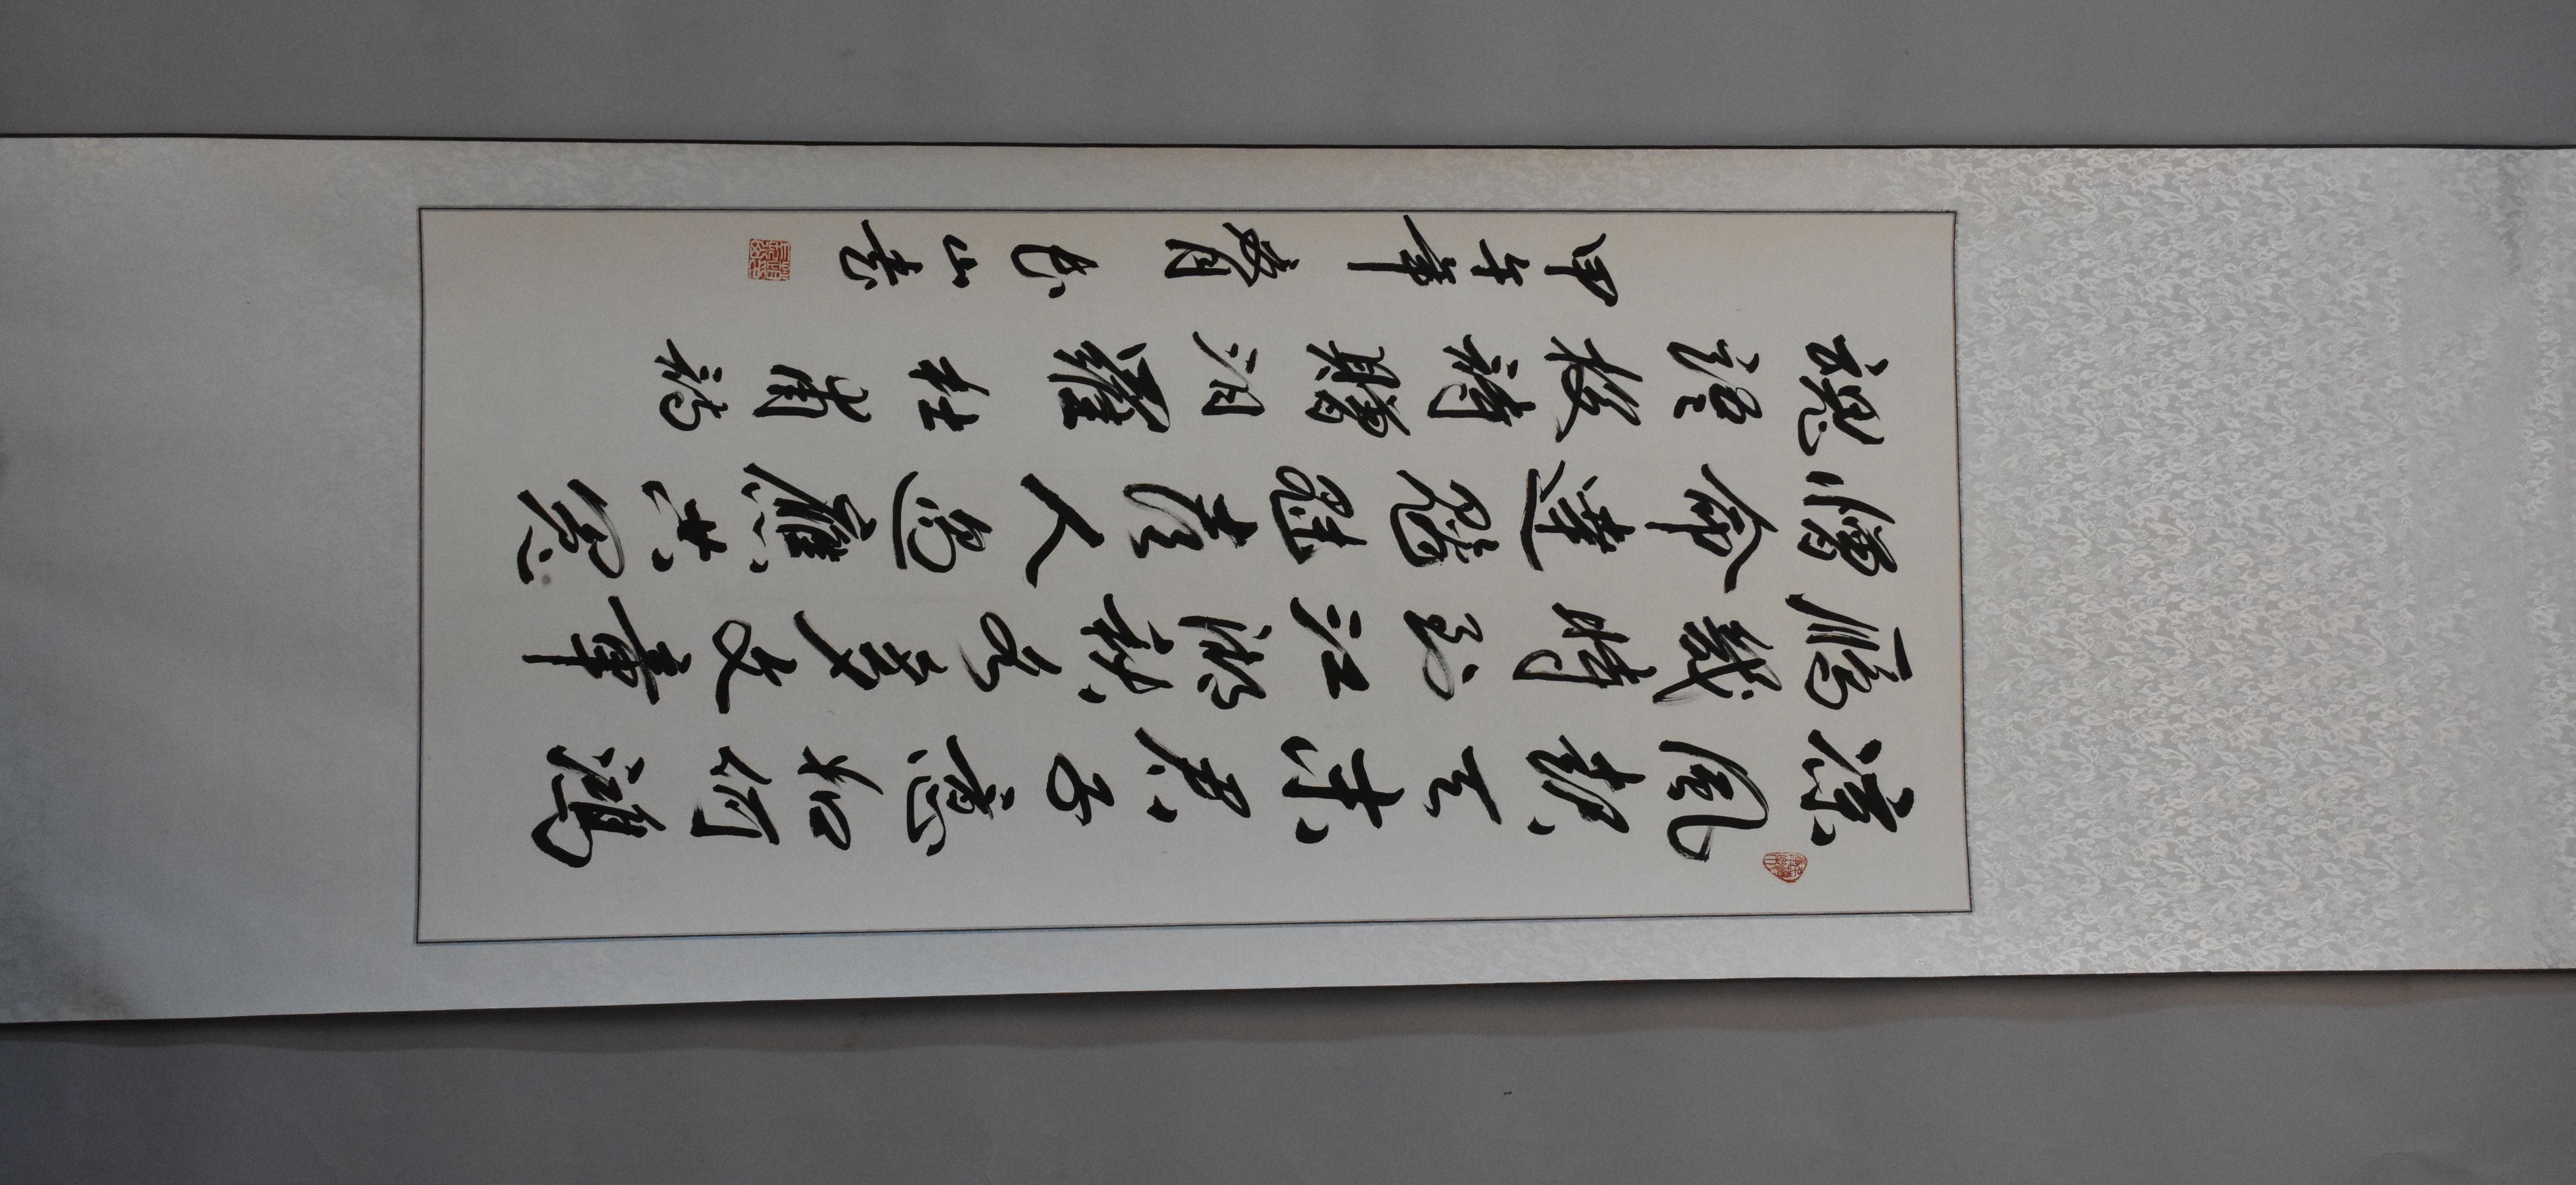 涼風起天末君子意如何鴻
雁幾時到江湖秋水多文章
憎命達魑魅喜人過應共冤
魂語投詩贈汨羅杜甫詩
甲午年春月山書